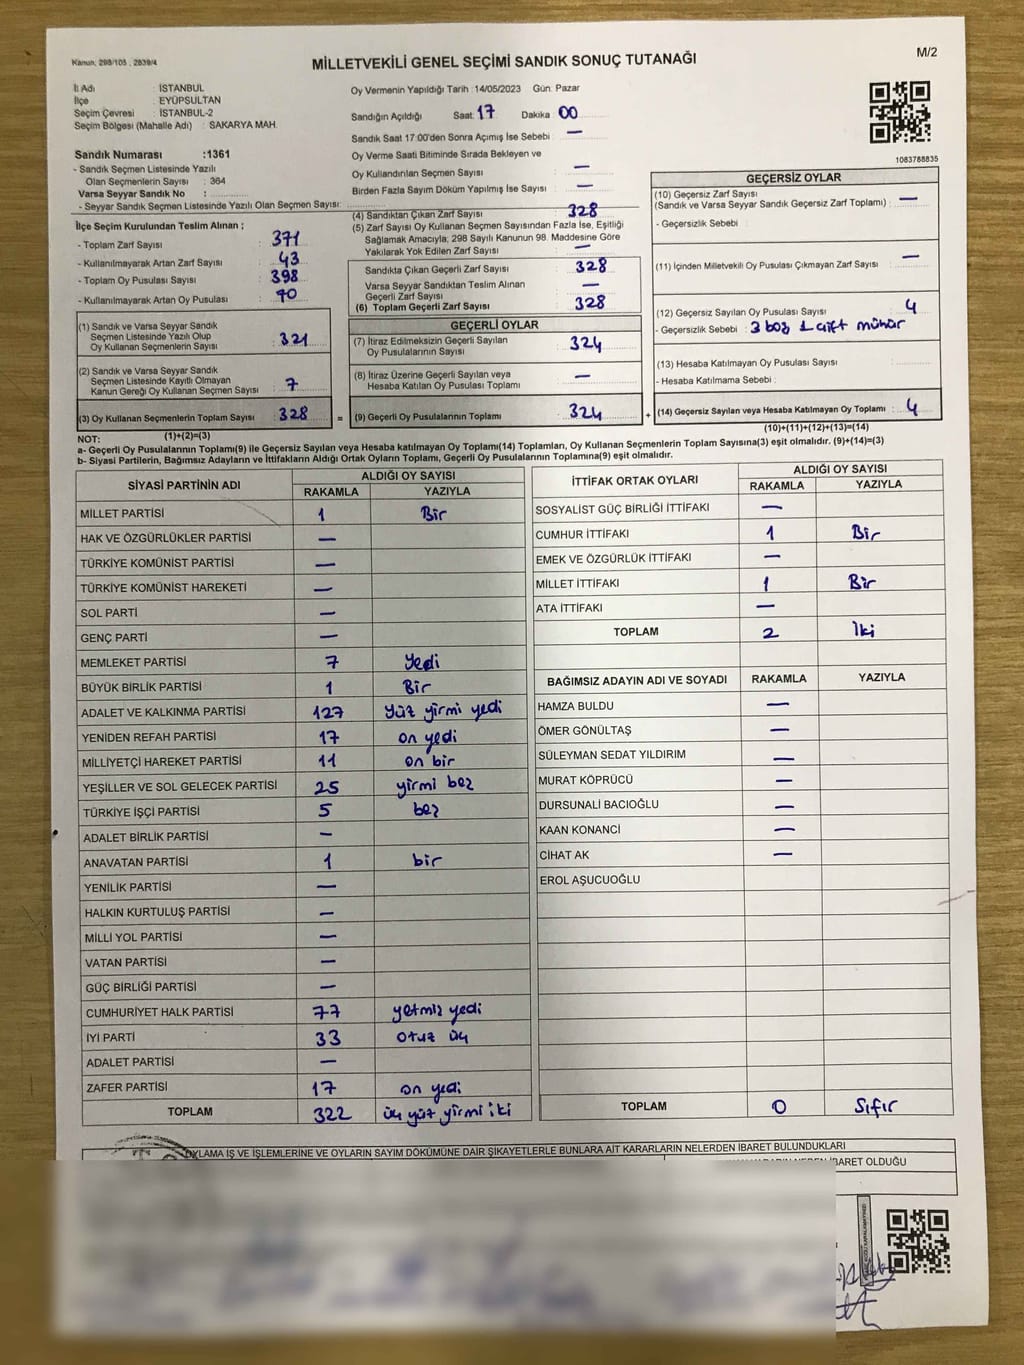 Kanun; 298/105 , 2839/4
M/2
MİLLETVEKİLİ GENEL SEÇİMİ SANDIK SONUÇ TUTANAĞI
İl Adı İSTANBUL
İlçe : EYÜPSULTAN
Seçim Çevresi : İSTANBUL-2
Seçim Bölgesi (Mahalle Adı) : SAKARYA MAH.
Sandık Numarası :1361
- Sandık Seçmen Listesinde Yazılı
Olan Seçmenlerin Sayısı : 364
Varsa Seyyar Sandık No :
- Seyyar Sandık Seçmen Listesinde Yazılı Olan Seçmen Sayısı:
İlçe Seçim Kurulundan Teslim Alınan ;
- Toplam Zarf Sayısı : 371
- Kullanılmayarak Artan Zarf Sayısı : 43
- Toplam Oy Pusulası Sayısı : 398
- Kullanılmayarak Artan Oy Pusulası : 70
(1) Sandık ve Varsa Seyyar Sandık
Seçmen Listesinde Yazılı Olup
Oy Kullanan Seçmenlerin Sayısı : 321
(2) Sandık ve Varsa Seyyar Sandık
Seçmen Listesinde Kayıtlı Olmayan
Kanun Gereği Oy Kullanan Seçmen Sayısı : 7
(3) Oy Kullanan Seçmenlerin Toplam Sayısı : 328
(1)+(2)=(3)
Oy Vermenin Yapıldığı Tarih : 14/05/2023 Gün: Pazar
Sandığın Açıldığı Saat: 17 Dakika : 00
Sandık Saat 17:00'den Sonra Açımış İse Sebebi : —
Oy Verme Saati Bitiminde Sırada Bekleyen ve
Oy Kullandırılan Seçmen Sayısı : —
Birden Fazla Sayım Döküm Yapılmış İse Sayısı : —
(4) Sandıktan Çıkan Zarf Sayısı : 328
(5) Zarf Sayısı Oy Kullanan Seçmen Sayısından Fazla İse, Eşitliği
Sağlamak Amacıyla, 298 Sayılı Kanunun 98. Maddesine Göre
Yakılarak Yok Edilen Zarf Sayısı : —
Sandıkta Çıkan Geçerli Zarf Sayısı : 328
Varsa Seyyar Sandıktan Teslim Alınan
Geçerli Zarf Sayısı : —
(6) Toplam Geçerli Zarf Sayısı : 328
GEÇERLİ OYLAR
(7) İtiraz Edilmeksizin Geçerli Sayılan
Oy Pusulalarının Sayısı : 324
(8) İtiraz Üzerine Geçerli Sayılan veya
Hesaba Katılan Oy Pusulası Toplamı : —
= (9) Geçerli Oy Pusulalarının Toplamı : 324
1083788835
GEÇERSİZ OYLAR
(10) Geçersiz Zarf Sayısı
(Sandık ve Varsa Seyyar Sandık Geçersiz Zarf Toplamı) : —
- Geçersizlik Sebebi :
(11) İçinden Milletvekili Oy Pusulası Çıkmayan Zarf Sayısı : —
(12) Geçersiz Sayılan Oy Pusulası Sayısı : 4
- Geçersizlik Sebebi : 3 boş 1 çift mühür
(13) Hesaba Katılmayan Oy Pusulası Sayısı :
- Hesaba Katılmama Sebebi :
+ (14) Geçersiz Sayılan veya Hesaba Katılmayan Oy Toplamı : 4
(10)+(11)+(12)+(13)=(14)
NOT:
a- Geçerli Oy Pusulasının Toplamı(9) ile Geçersiz Sayılan veya Hesaba katılmayan Oy Toplamı(14) Toplamları, Oy Kullanan Seçmenlerin Toplam Sayısına(3) eşit olmalıdır. (9)+(14)=(3)
b- Siyasi Partilerin, Bağımsız Adayların ve İttifakların Aldığı Ortak Oyların Toplamı, Geçerli Oy Pusulalarının Toplamına(9) eşit olmalıdır.
SİYASİ PARTİNİN ADI ALDIĞI OY SAYISI
RAKAMLA YAZIYLA
MİLLET PARTİSİ 1 Bir
HAK VE ÖZGÜRLÜKLER PARTİSİ —
TÜRKİYE KOMÜNİST PARTİSİ —
TÜRKİYE KOMÜNİST HAREKETİ —
SOL PARTİ —
GENÇ PARTİ —
MEMLEKET PARTİSİ 7 Yedi
BÜYÜK BİRLİK PARTİSİ 1 Bir
ADALET VE KALKINMA PARTİSİ 127 Yüz yirmi yedi
YENİDEN REFAH PARTİSİ 17 on yedi
MİLLİYETÇİ HAREKET PARTİSİ 11 on bir
YEŞİLLER VE SOL GELECEK PARTİSİ 25 yirmi beş
TÜRKİYE İŞÇİ PARTİSİ 5 beş
ADALET BİRLİK PARTİSİ —
ANAVATAN PARTİSİ 1 bir
YENİLİK PARTİSİ —
HALKIN KURTULUŞ PARTİSİ —
MİLLİ YOL PARTİSİ —
VATAN PARTİSİ —
GÜÇ BİRLİĞİ PARTİSİ —
CUMHURİYET HALK PARTİSİ 77 yetmiş yedi
İYİ PARTİ 33 otuz üç
ADALET PARTİSİ —
ZAFER PARTİSİ 17 on yedi
TOPLAM 322 üç yüz yirmi iki
İTTİFAK ORTAK OYLARI ALDIĞI OY SAYISI
RAKAMLA YAZIYLA
SOSYALİST GÜÇ BİRLİĞİ İTTİFAKI —
CUMHUR İTTİFAKI 1 Bir
EMEK VE ÖZGÜRLÜK İTTİFAKI —
MİLLET İTTİFAKI 1 Bir
ATA İTTİFAKI —
TOPLAM 2 İki
BAĞIMSIZ ADAYIN ADI VE SOYADI RAKAMLA YAZIYLA
HAMZA BULDU —
ÖMER GÖNÜLTAŞ —
SÜLEYMAN SEDAT YILDIRIM —
MURAT KÖPRÜCÜ —
DURSUNALİ BACIOĞLU —
KAAN KONANCİ —
CİHAT AK —
EROL AŞUCUOĞLU
TOPLAM 0 Sıfır
OYLAMA İŞ VE İŞLEMLERİNE VE OYLARIN SAYIM DÖKÜMÜNE DAİR ŞİKAYETLERLE BUNLARA AİT KARARLARIN NELERDEN İBARET BULUNDUKLARI
İBARET OLDUĞU